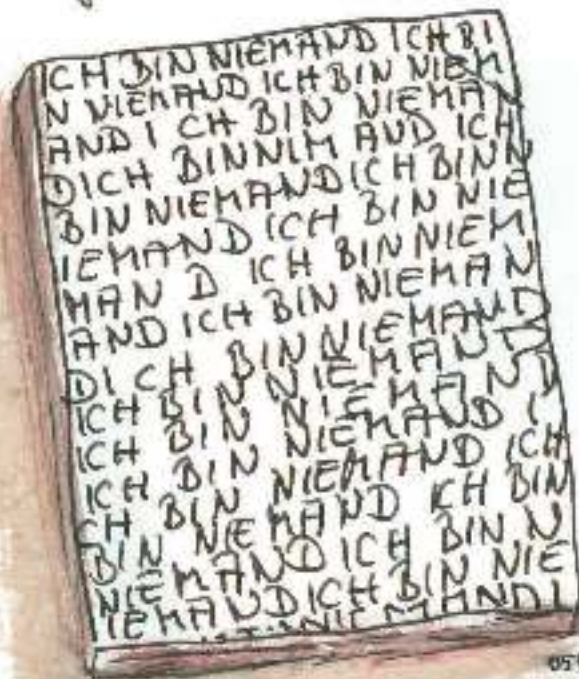 ICH BIN NIEMAND ICH BI
N NIEMAND ICH BIN NIEM
AND I CH BIN NIEMAN
DICH BINNIM AND ICH
BIN NIEMANDICH BINN
IEMAND ICH BIN NIE
MAN D ICH BIN NIEM
AND ICH BIN NIEMAN
DI CH BIN NIEMAND
ICH BIN NIEMAND
ICH BIN NIEMAND
ICH BIN NIEMAND I
CH BIN NIEMAND ICH
BIN NIEMAND ICH BIN
NIEMAND ICH BIN N
IEMANDICH BIN NIE